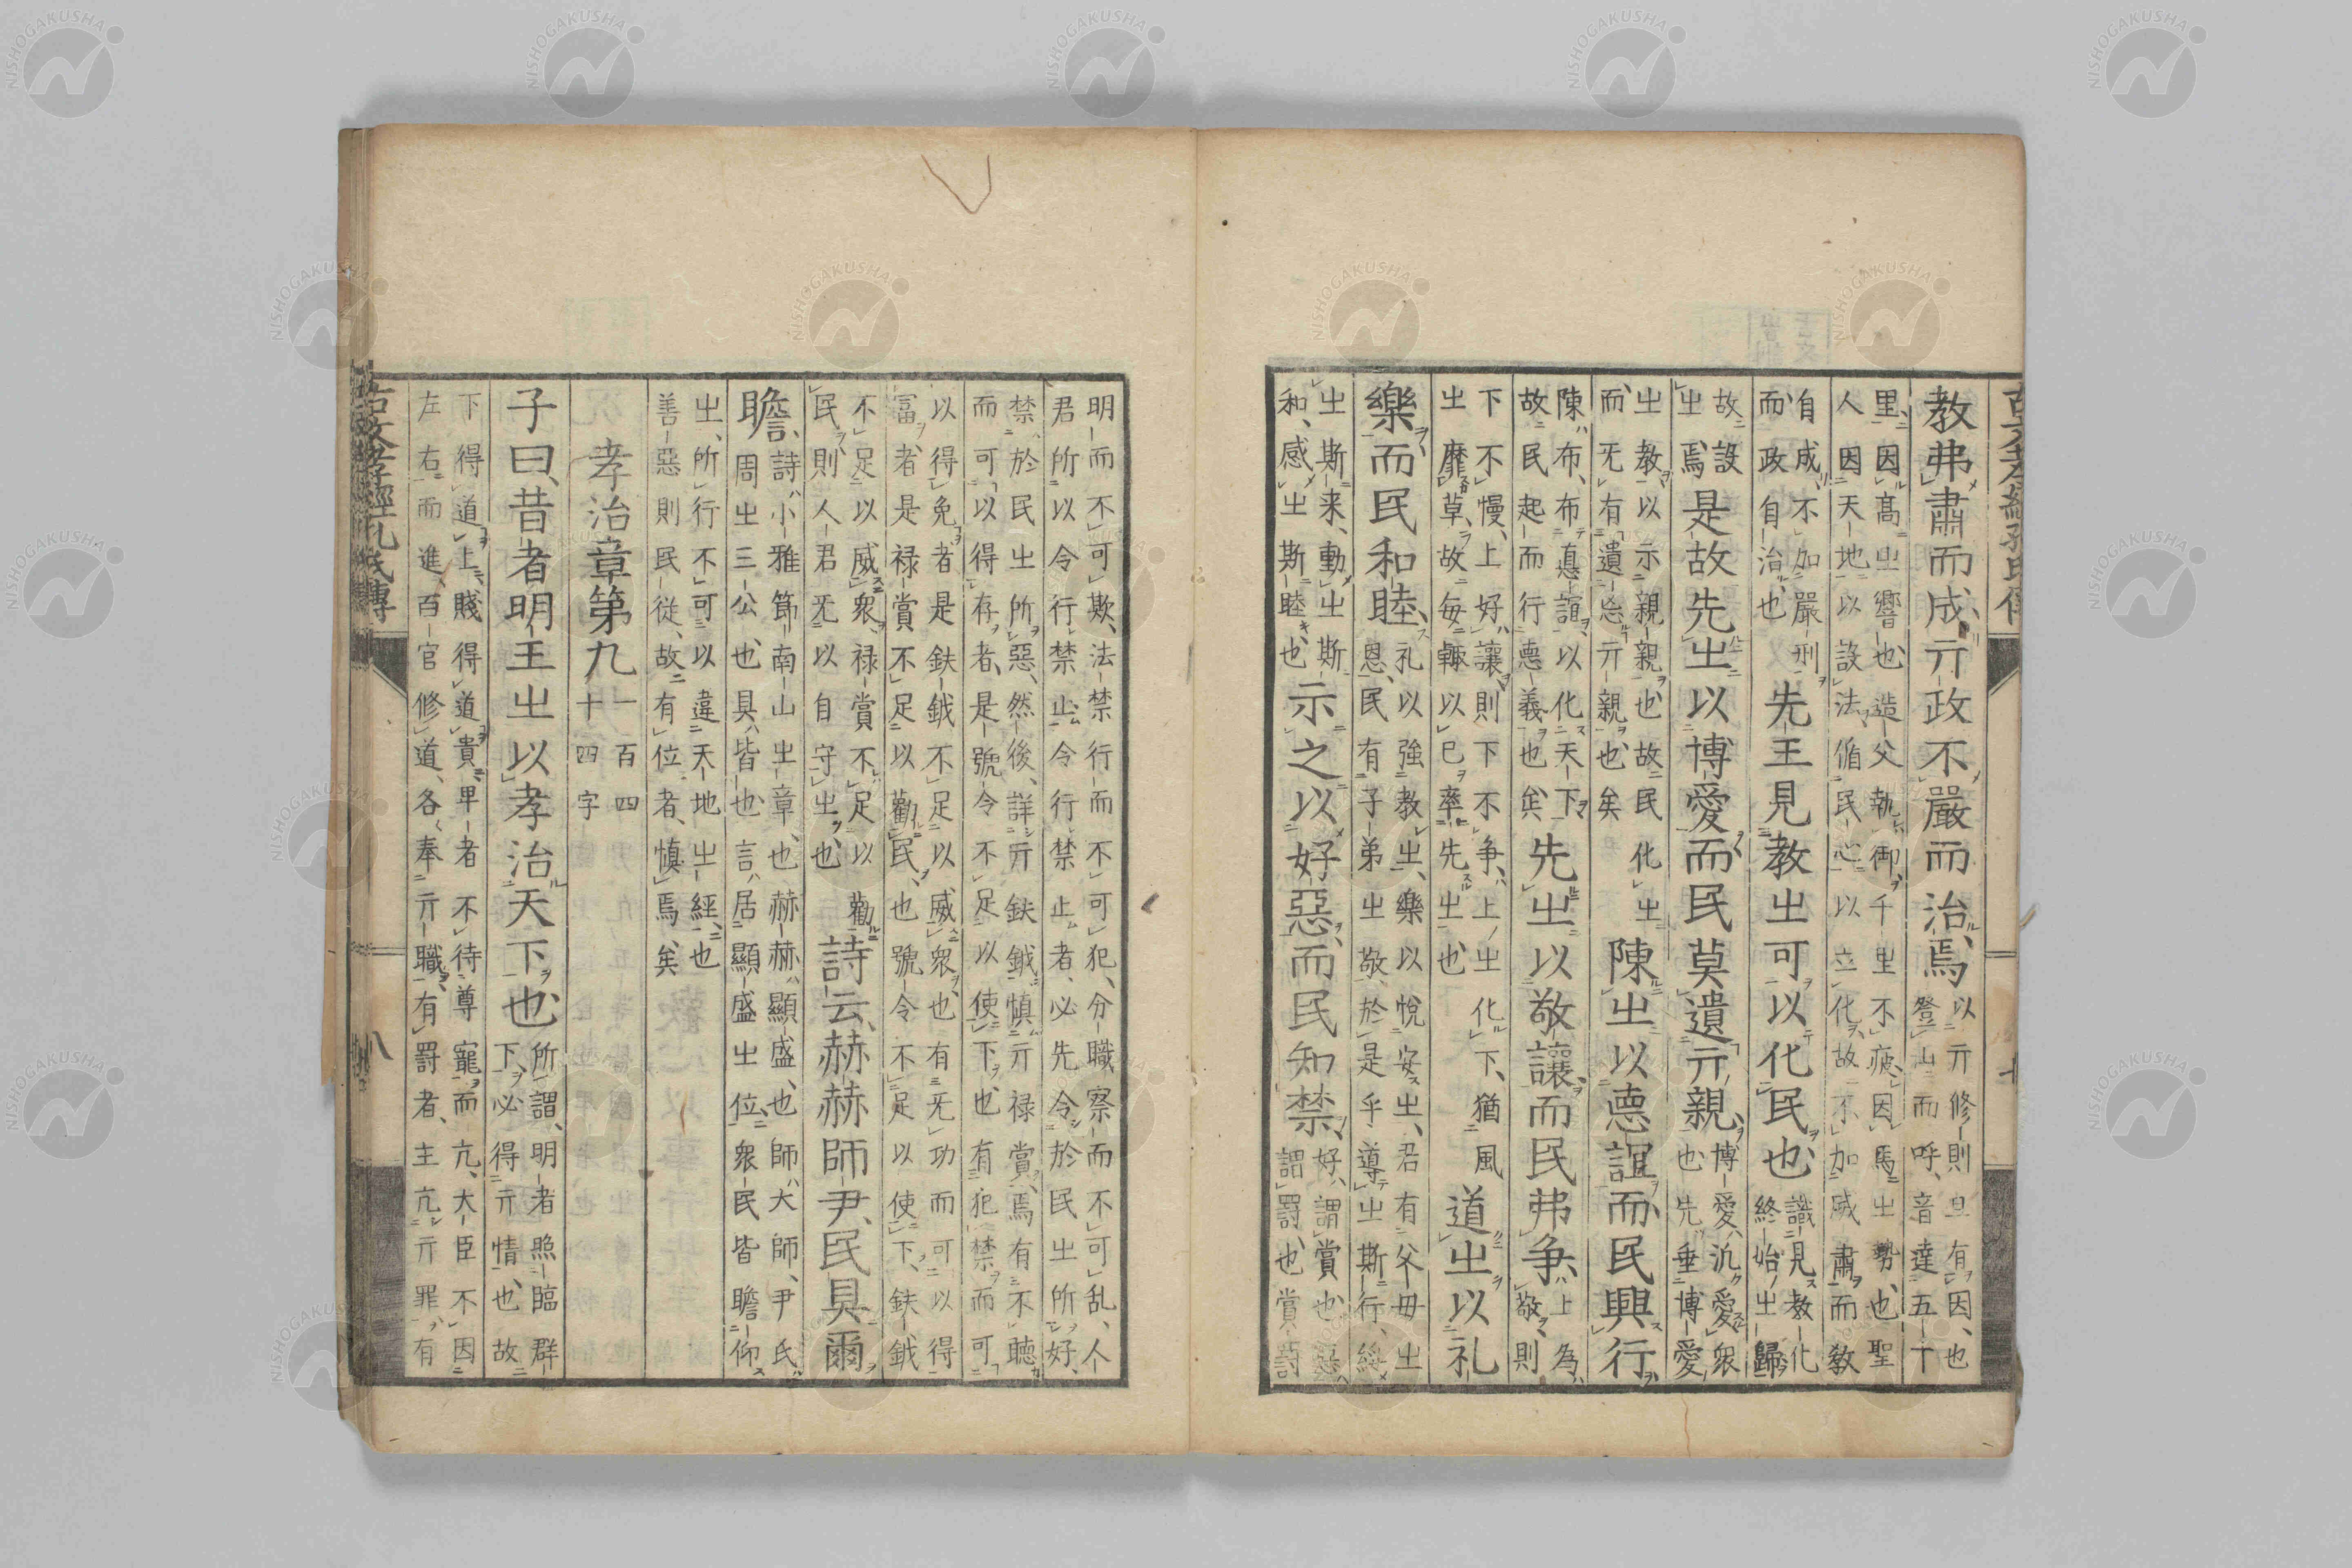 古文孝經孔氏傳
教弗肅而成亓政不嚴而治焉以亓修則且有因也
登山而呼音達五十
里因髙㞢響也造父執御千里不疲因馬㞢勢也聖
人因天地以設法循民心以立化故不加威肅而敎
自成不加嚴刑
而政自治也先王見教㞢可以化民也識見教化
終始㞢歸
故設
㞢焉是故先㞢以博愛而民莫遺亓親博愛汎愛衆
也先垂博愛
㞢教以示親親也故民化㞢
而旡有遺忘亓親也矣陳㞢以悳誼而民興行
陳布布悳誼以化天下
故民起而行悳義也矣先㞢以敬讓而民弗争上為
敬則
下不慢上好讓則下不争上㞢化下猶風
㞢靡草故每輙以已率先㞢也道㞢以礼
樂而民和睦礼以強教㞢樂以悅安㞢君有父母㞢
恩民有子弟㞢敬於是乎導㞢斯行綏
㞢斯来動㞢斯
和感㞢斯睦也示之以好惡而民知禁好謂賞也惡
謂罰也賞罰
明而不可欺法禁行而不可犯分職察而不可乱人
君所以令行禁止令行禁止者必先令於民㞢所好
禁於民㞢所惡然後詳亓鈇鉞慎亓禄賞焉有不聴
而可以得存者是號令不足以使下也有犯禁而可
以得免者是鈇鉞不足以威衆也有旡功而可以得
冨者是禄賞不足以勸民也號令不足以使下鈇鉞
不足以威衆禄賞不足以勸
民則人君旡以自守㞢也詩云赫赫師尹民具爾
瞻詩小雅節南山㞢章也赫赫顯盛也師大師尹氏
周㞢三公也具皆也言居顯盛㞢位衆民皆瞻仰
㞢所行不可以違天地㞢經也
善惡則民従故有位者慎焉矣
孝治章第九一百四
十四字
子曰昔者明王㞢以孝治天下也所謂明者照臨群
下必得亓情也故
下得道上賤得道貴卑者不待尊寵而亢大臣不因
左右而進百官修道各奉亓職有罰者主亢亓罪有
古文孝經孔氏傳
八